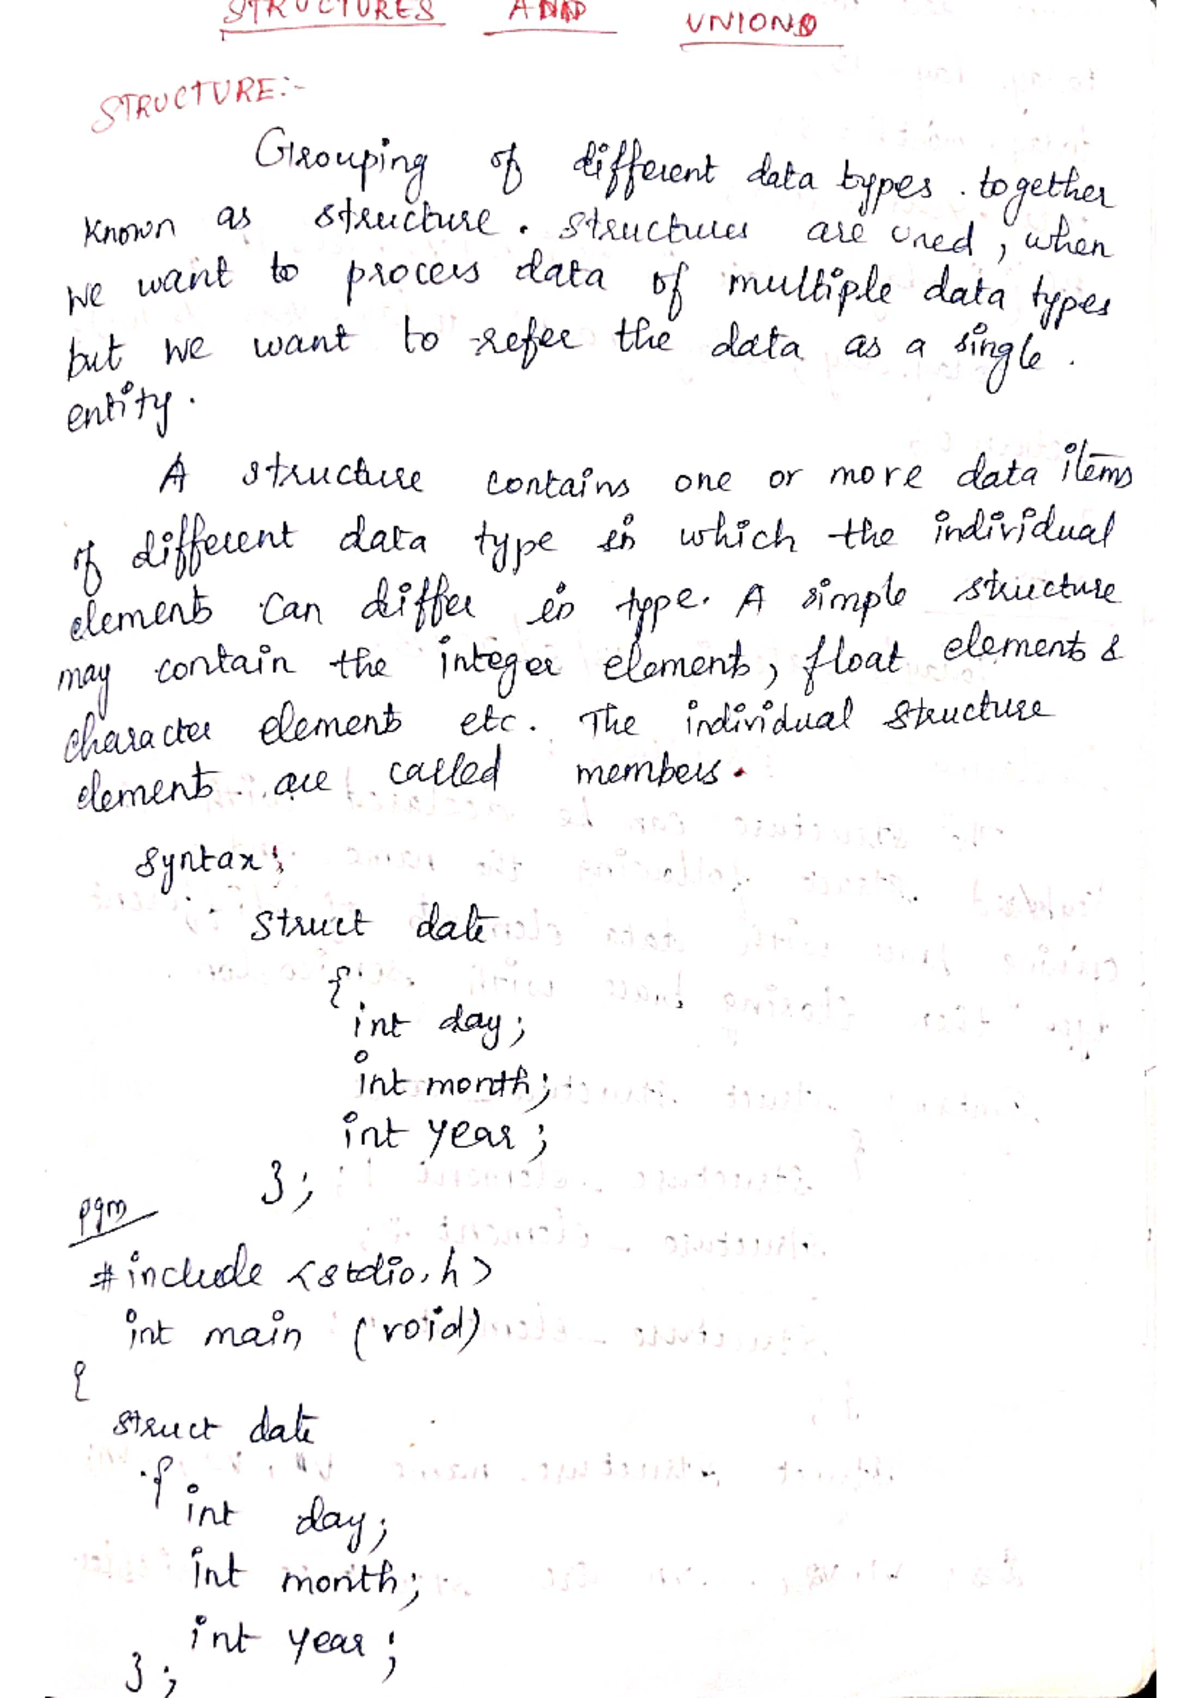 STRUCTURES AND UNIONS
STRUCTURE:-
Grouping of different data types . together
known as structure . structures are used , when
we want to process data of multiple data types
but we want to refer the data as a single .
entity .
A structure contains one or more data items
of different data type in which the individual
elements can differ in type. A simple structure
may contain the integer elements, float elements &
character elements etc. The individual structure
elements are called members.
Syntax:
struct date
{
int day;
int month;
int year;
};
pgm
#include <stdio.h>
int main (void)
{
struct date
{
int day;
int month;
int year;
};